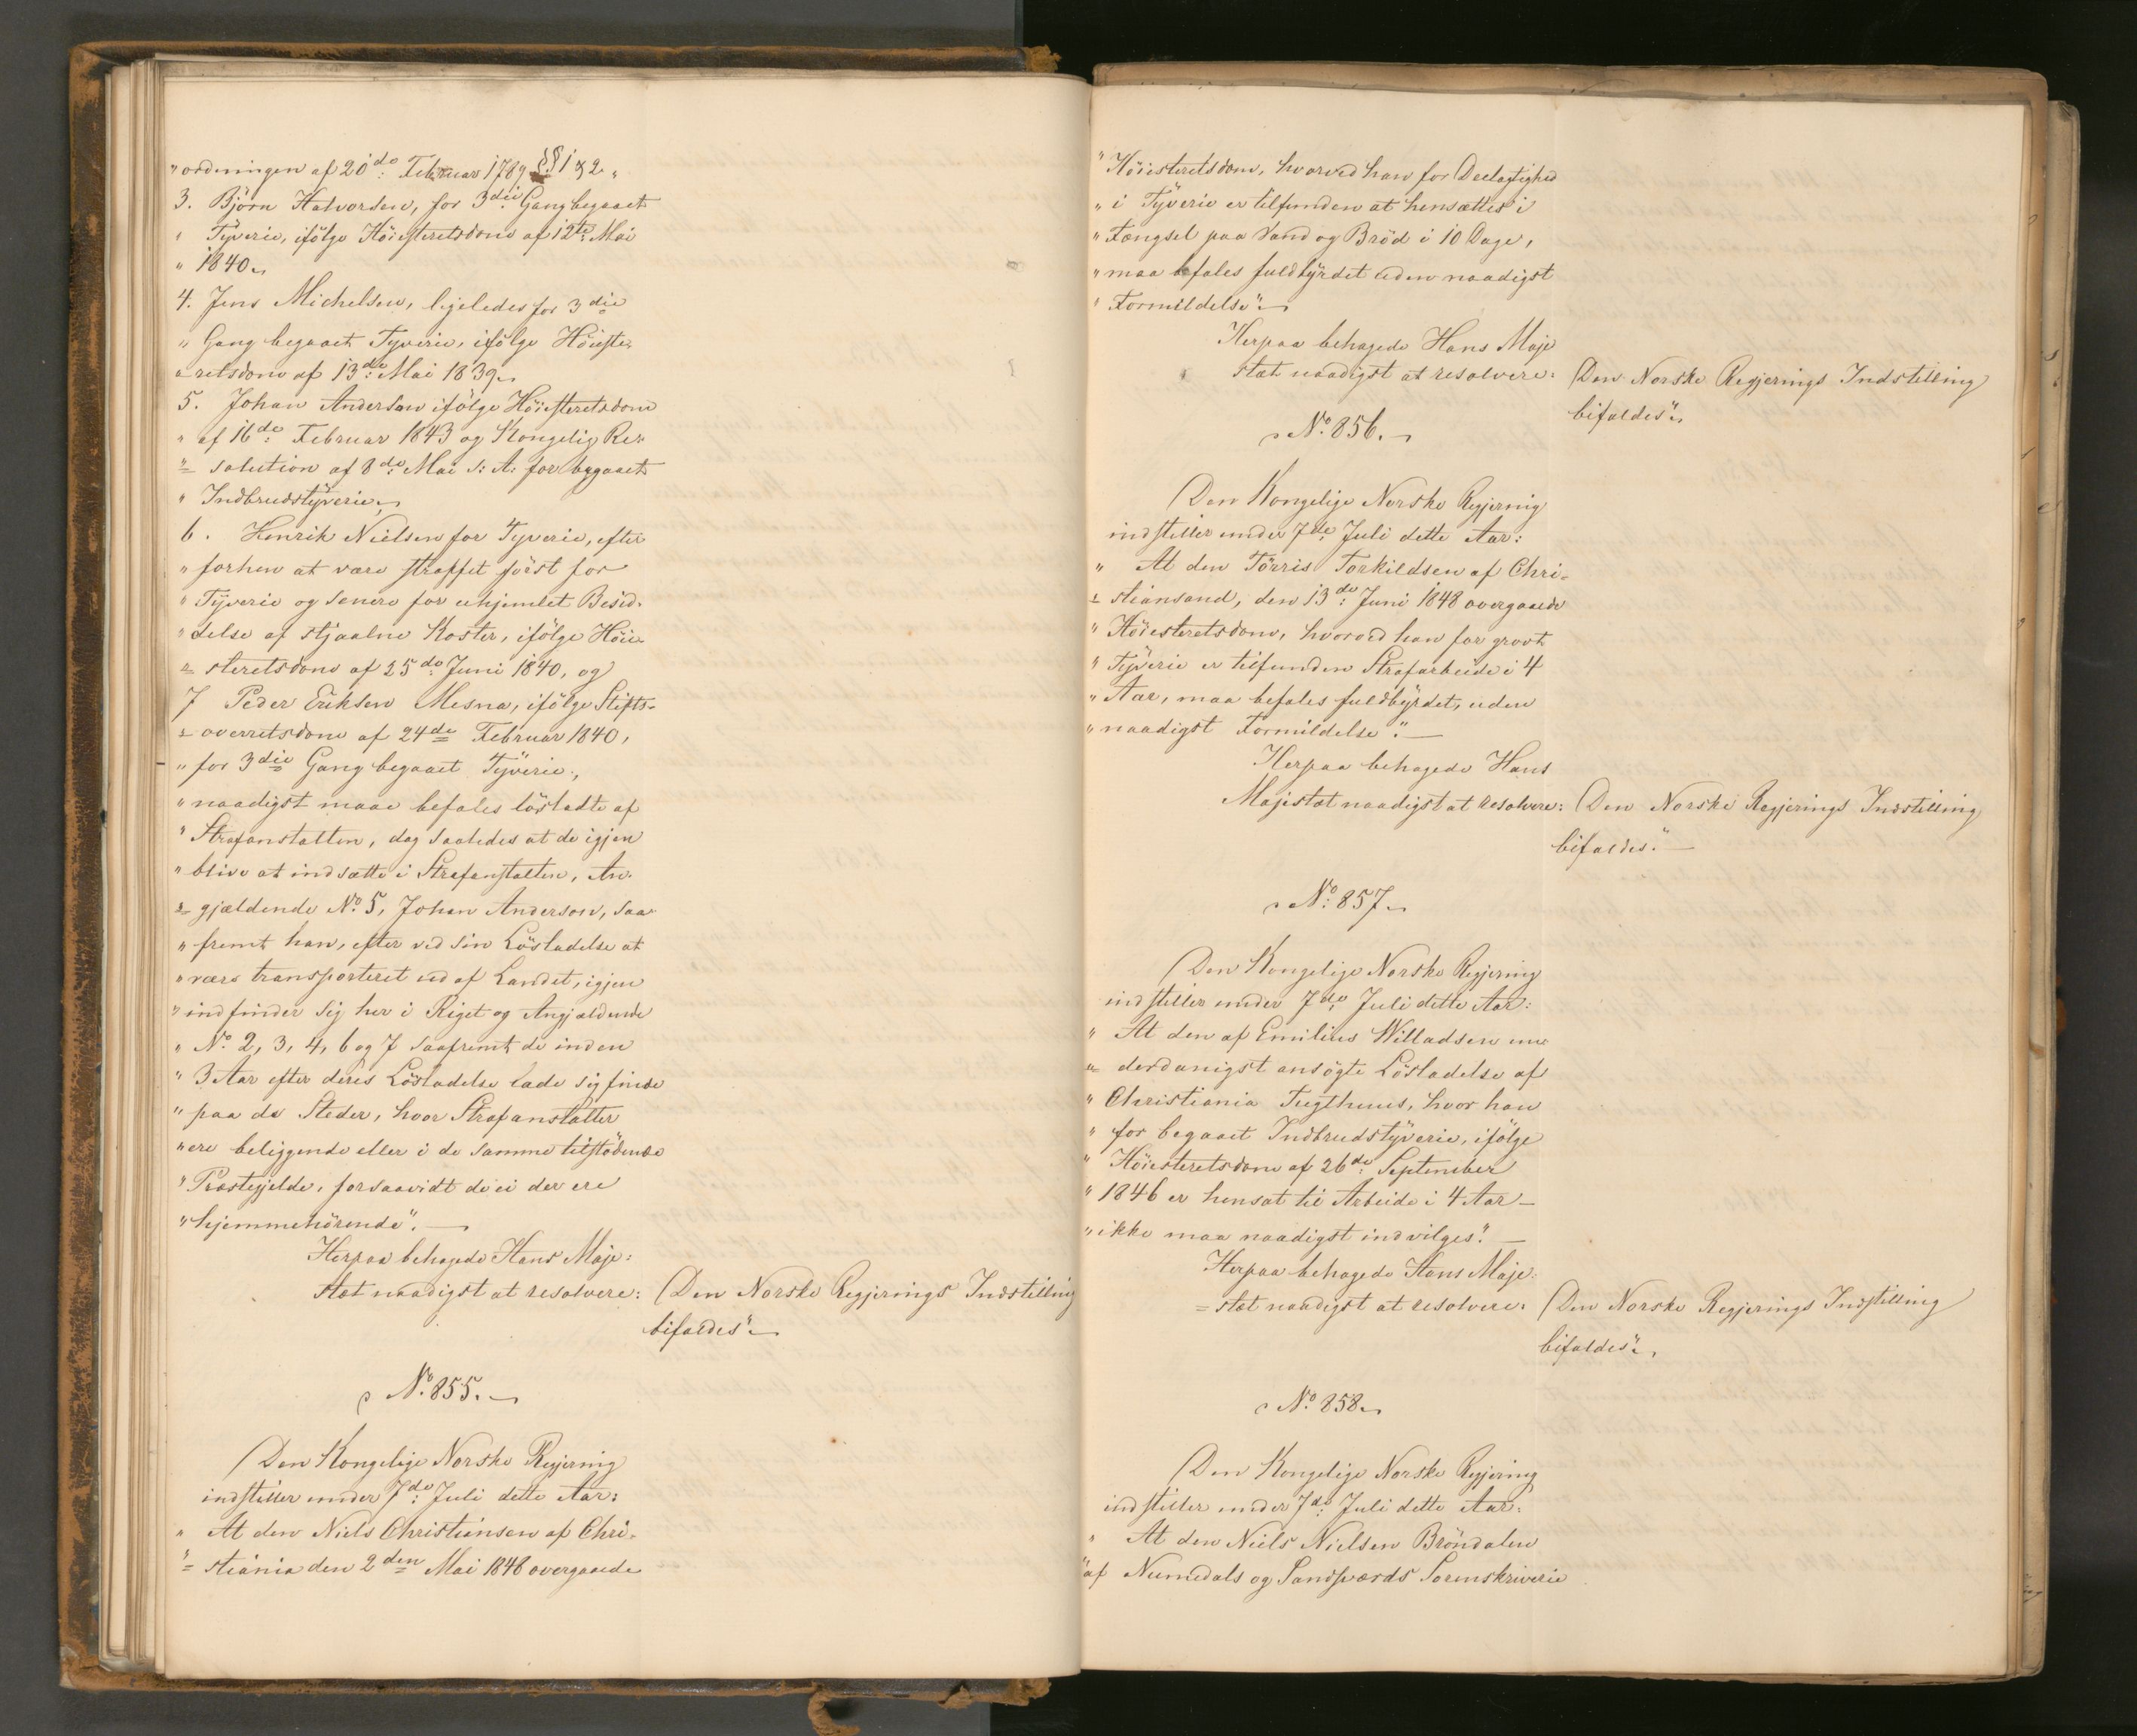 "ordningen af 20de Februar 1789 §§ 1 & 2.
3. Björn Halvorsen, for 3die Gang begaaet
" Tyverie, ifölge Höiesteretsdom af 12te Mai
" 1840.
4. Jens Michelsen, ligeledes for 3die
" Gang begaaet Tyverie, ifölge Höieste-
"retsdom af 13de Mai 1839.
5. Johan Anderson ifölge Höiesteretsdom
" af 16de Februar 1843 og Kongelig Re-
"= solution af 8de Mai s: A: for begaaet
" Indbrudstyverie,
6. Henrik Nielsen for Tyverie, efter
" forhen at være straffet först for
" Tyverie og senere for uhjemlet Besid-
" delse af stjaalne Koster, ifölge Höie-
"= steretsdom af 25de Juni 1840, og
7 Peder Eriksen Mesna, ifölge Stifts-
"= overretsdom af 24de Februar 1840,
" for 3die Gang begaaet Tyverie,
" naadigst maae befales lösladte af
" Strafanstalten, dog saaledes at de igjen
" blive at indsætte i Strafanstalten, An-
"= gjældende No 5, Johan Anderson, saa-
" fremt han, efter ved sin Lösladelse at
" være transporteret ud af Landet, igjen
" indfinder sig her i Riget og Angjældende
" No 2, 3, 4, 6 og 7 saafremt de inden
" 3 Aar efter deres Lösladelse lade sig finde
" paa de Steder, hvor Strafanstalter
" ere beliggende eller i de samme tilstödende
" Præstegjelde, forsaavidt de ei der ere
" hjemmehörende". —
Herpaa behagede Hans Maje-
stæt naadigst at resolvere: Den Norske Regjerings Indstilling
bifaldes".
No. 855.
Den Kongelige Norske Regjering
indstiller under 7de Juli dette Aar:
" At den Niels Christiansen af Chri-
"= stiania den 2den Mai 1848 overgaaede
" Höiesteretsdom, hvorved han for Deelagtighed
" i Tyverie er tilfunden at hensættes i
" Fængsel paa Vand og Bröd i 10 Dage,
" maa befales fuldbyrdet uden naadigst
" Formildelse".
Herpaa behagede Hans Maje
stæt naadigst at resolvere: Den Norske Regjerings Indstilling
bifaldes".
No. 856.
Den Kongelige Norske Regjering
indstiller under 7de Juli dette Aar:
" At den Törris Torkildsen af Chri-
"= stiansand, den 13de Juni 1848 overgaaede
" Höiesteretsdom, hvorved han for grovt
" Tyverie er tilfunden Strafarbeide i 4
" Aar, maa befales fuldbyrdet, uden
" naadigst Formildelse". —
Herpaa behagede Hans
Majestæt naadigst at resolvere: Den Norske Regjerings Indstilling
bifaldes". —
No. 857.
Den Kongelige Norske Regjering
indstiller under 7de Juli dette Aar:
" At den af Emilius Willadsen un-
"= derdanigst ansögte Lösladelse af
" Christiania Tugthuus, hvor han
" for begaaet Indbrudstyverie, ifölge
" Höiesteretsdom af 26de September
" 1846 er hensat til Arbeide i 4 Aar —
" ikke maa naadigst indvilges". —
Herpaa behagede Hans Maje-
= stæt naadigst at resolvere: Den Norske Regjerings Indstilling
bifaldes".
No. 858.
Den Kongelige Norske Regjering
indstiller under 7de Juli dette Aar:
" At den Niels Nielsen Bröndalen
"af Numedals og Sandsværds Sorenskriverie